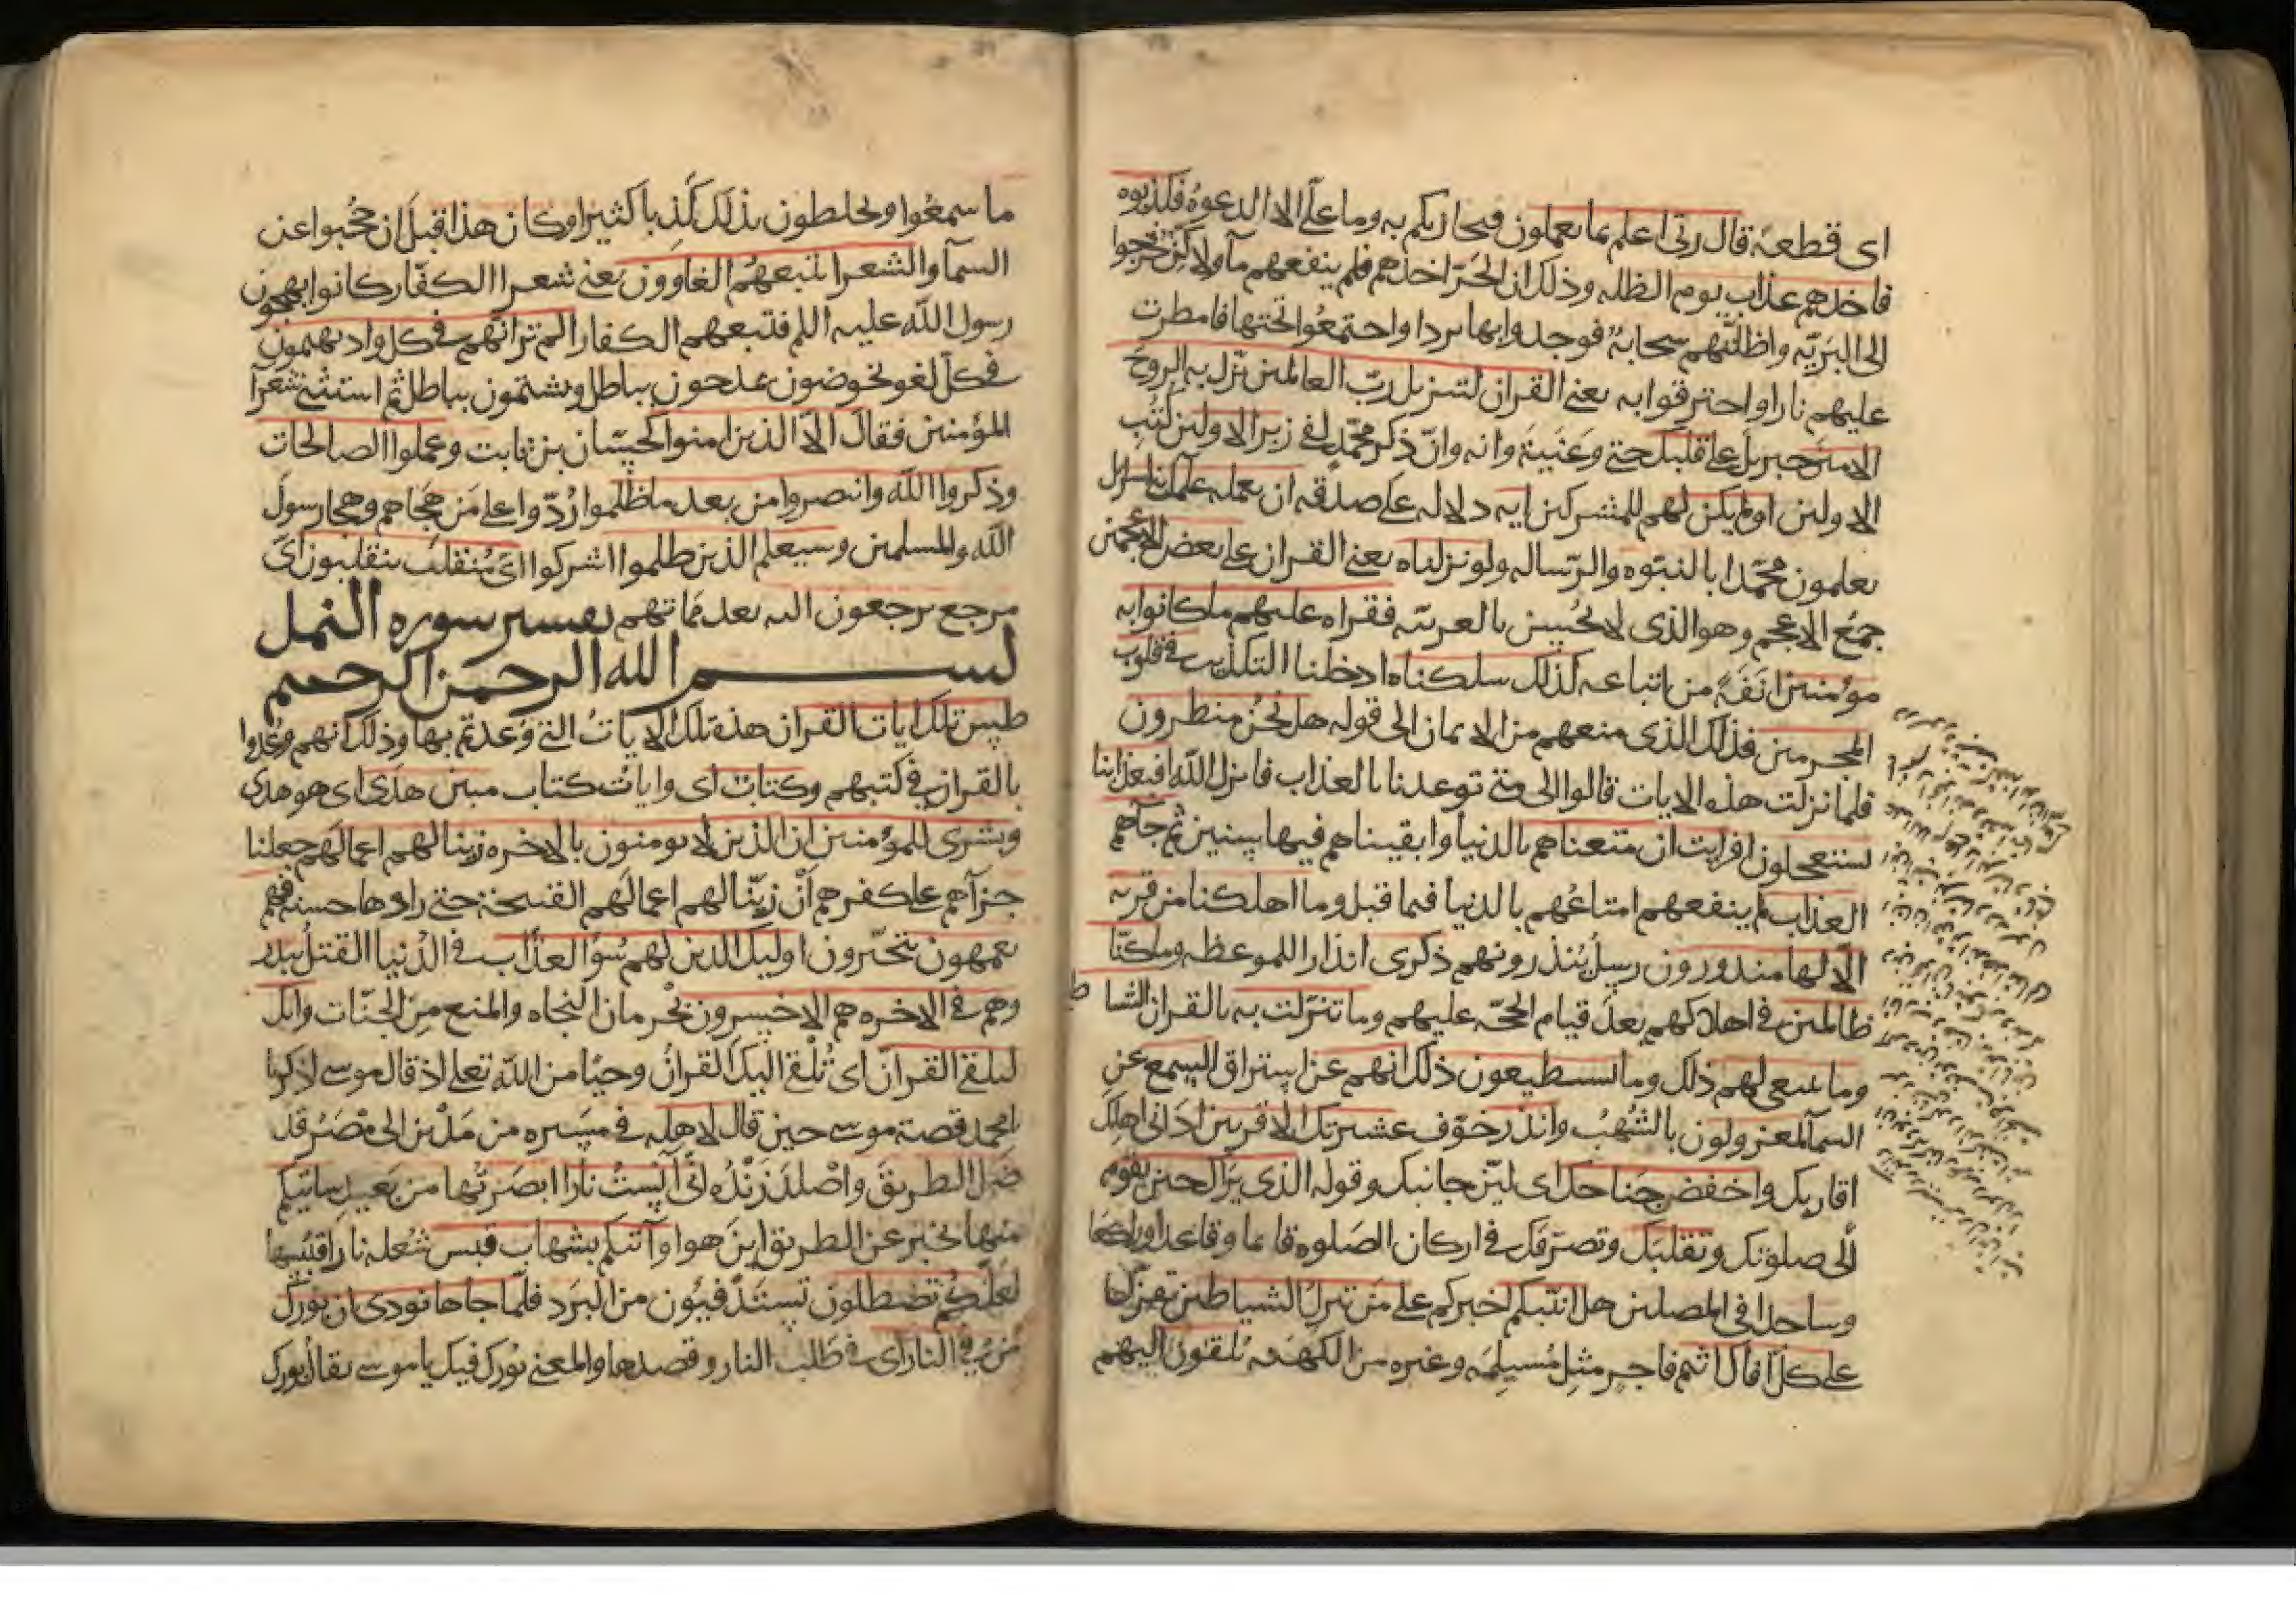 اى قطعة قال ربى اعلم بما تعملون فيجازيكم به وما علىّ الا الدعوة فكذبوه
فاخذهم عذاب يوم الظله وذلك ان الحرّ اخذهم فلم ينفعهم مآ ولا كن خرجوا
الى البرّيه واظلّتهم سحابة فوجدوا بها بردا واجتمعوا تحتها فامطرت
عليهم نارا واحترقوا به يعنى القران لتنزيل ربّ العالمين نزل به الروح
الامين جبريل على قلبك حتى وعيته وانه وانّ ذكر محمّد لفى زبر الاولين كتب
الاولين اولم يكن لهم للمشركين ايه دلاله على صدقه ان يعلمه علما بنى اسرايل
يعلمون محمّدا بالنبوّه والرّساله ولو نزلناه يعنى القران على بعض الاعجمين
جمع الاعجم وهو الذى لا يحسن بالعربيّه فقراه عليهم ما كانوا به
مؤمنين انَفَةً من اتباعه كذلك سلكناه ادخلنا التكذيب فى قلوب
المجرمين فذلك الذى منعهم من الايمان الى قوله هل نحن منظرون
فلما نزلت هذه الايات قالوا الى متى توعدنا بالعذاب فانزل الله افبعذابنا
يستعجلون افرايت ان متعناهم بالدنيا وابقيناهم فيها سنين ثم جآهم
العذاب لم ينفعهم امتاعهم بالدنيا فيما قبل وما اهلكنا من قريه
الّا لها منذرون رسل ينذرونهم ذكرى انذارا للموعظه وما كنّا
ظالمين فى اهلاكهم بعد قيام الحجّه عليهم وما تنزّلت به بالقران الشياطين
وما ينبغى لهم ذلك وما يستطيعون ذلك انهم عن استراق السمع عن
السمآ لمعزولون بالشهب وانذر خوّف عشيرتك الاقربين ادانى اهلك
اقاربك واخفض جناحك اى ليّن جانبك وقوله الذى يراك حين تقوم
الى صلوتك وتقلبك وتصرّفك فى اركان الصلوه قايما وقاعدا وراكعا
وساجدا فى المصلين هل انبّيكم اخبركم على من تنزل الشياطين تنزل
على كلّ افّاك اثيم فاجر مثل مُسيلِمه وغيره من الكهنه يُلقون اليهم
ما سمعوا ويخلطون بذلك كَذِبا كثيرا وكان هذا قبل ان حُجبوا عن
السمآ والشعرا يتبعهم الغاوون يعنى شعرا الكفّار كانوا يهجون
رسول الله عليه السلم فتتبعهم الكفار الم تر انّهم فى كل واد يهيمون
فى كل لغو يخوضون يمدحون بباطل ويشتمون بباطل ثم استثنى شعرآ
المؤمنين فقال الّا الذين امنوا كحسّان بن ثابت وعملوا الصالحات
وذكروا الله وانتصروا من بعد ما ظلموا ردّوا على مَن هَجَاهم وهجا رسول
الله والمسلمين وسيعلم الذين ظلموا اشركوا اىّ مُنقلَب ينقلبون اىّ
مرجع يرجعون اليه بعد مماتهم تفسير سوره النمل
بسم الله الرحمن الرحيم
طس تلك ايات القران هذه تلك الايات التى وُعدتم بها وذلك انهم وُعدوا
بالقران فى كتبهم وكتاب اى وايات كتاب مبين هدًى اى هو هدى
وبشرى للمؤمنين ان الذين لا يومنون بالاخره زينا لهم اعمالهم جعلنا
جزآهم على كفرهم انْ زيّنّا لهم اعمالهم القبيحة حتى راوها حسنه فهم
يعمهون يتحيّرون اوليك الذين لهم سُوُ العذاب فى الدنيا القتل ببدر
وهم فى الاخره هم الاخسرون بحرمان النجاه والمنع من الجنّات وانك
لتلقى القرانَ اى تُلقّى اليك القرانُ وحيًا من الله تعلى اذ قال موسى اذكر يا
محمد قصة موسى حين قال لاهله فى مسيره من مَدْين الى مصر وقد
ضل الطريق واصلد زَنْدُه انى آنستُ نارا ابصرتها من بعيد ساتيكم
منها بخبر عن الطريق اين هو او آتيكم بشهاب قبس شعله نار اقتبسها
لعلّكم تصطلون تستدفيون من البرد فلمّا جاها نودى ان بُورك
مَن فى النار اى فى طلب النار وقصدها والمعنى بُورك فيك يا موسى يقال بُورك